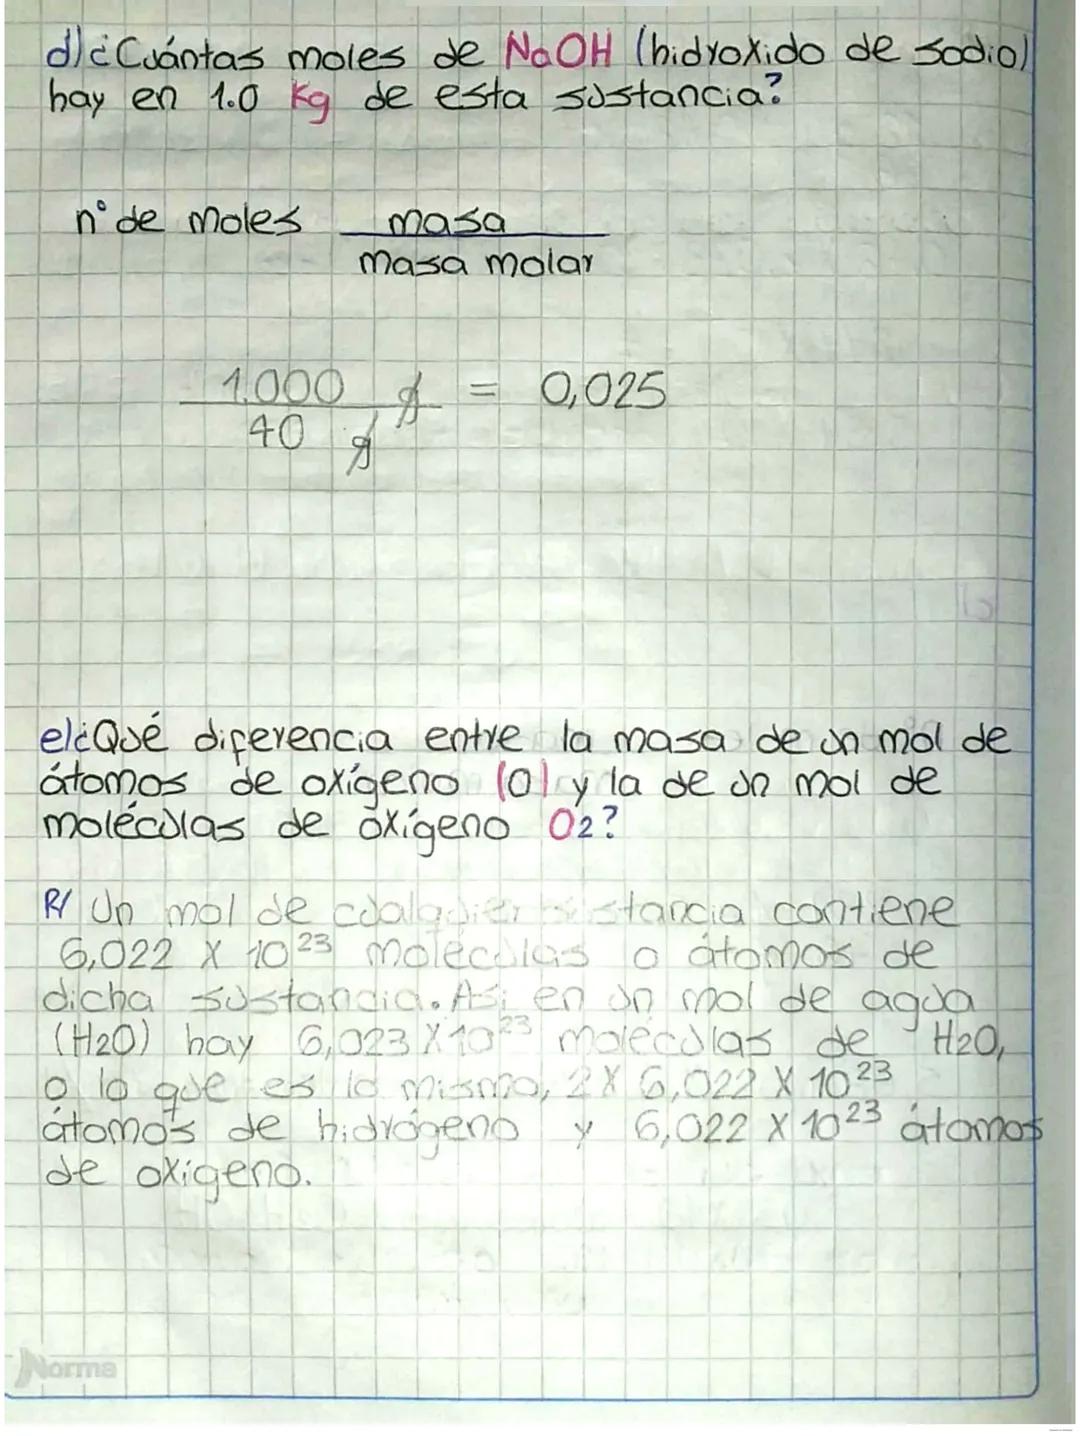 d) ¿Cuántas moles de NaOH (hidroxido de sodio)
hay en 1.0 Kg de esta sustancia?
n° de moles masa
masa molar
1.000 g = 0,025
40 g
e) ¿Qué diferencia entre la masa de un mol de
átomos de oxígeno (O) y la de un mol de
moléculas de óxígeno O2?
R/ Un mol de cualquier sustancia contiene
6,022 X 10²³ moléculas o átomos de
dicha sustancia. Asi en un mol de agua
(H2O) hay 6,023 X 10²³ moléculas de H2O,
o lo que es lo mismo, 2 X 6,022 X 10²³
átomos de hidrógeno y 6,022 X 10²³ átomos
de oxigeno.
Norma